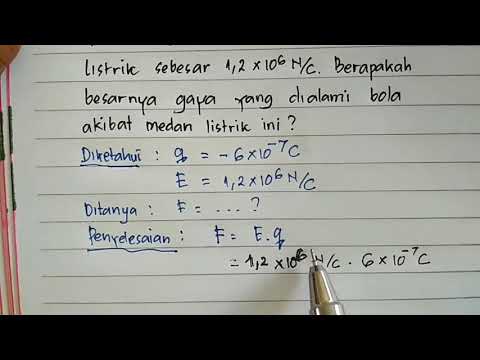 listrik sebesar 1,2 × 10⁶ N/C. Berapakah
besarnya gaya yang dialami bola
akibat medan listrik ini?
Diketahui : q = −6×10⁻⁷C
E = 1,2×10⁶ N/C
Ditanya : F = ... ?
Penyelesaian : F = E.q
= 1,2 × 10⁶ N/C . 6 × 10⁻⁷ C